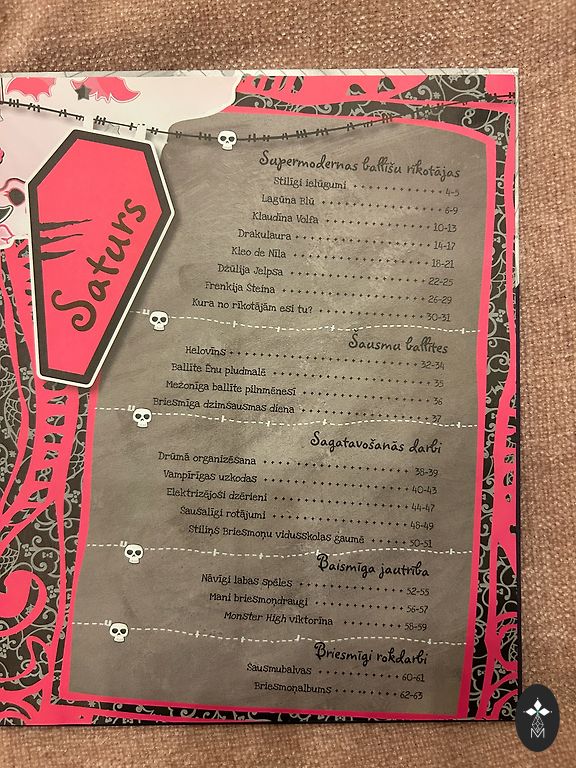 Saturs
Supermodernas ballīšu rīkotājas
Stilīgi ielūgumi 4-5
Lagūna Blū 6-9
Klaudīna Volfa 10-13
Drakulaura 14-17
Kleo de Nīla 18-21
Džūlija Jelpsa 22-25
Frenkija Šteina 26-29
Kura no rīkotājām esi tu? 30-31
Šausmu ballītes
Helovīns 32-34
Ballīte Ēnu pludmalē 35
Mežonīga ballīte pilnmēnesī 36
Briesmīga dzimšausmas diena 37
Sagatavošanās darbi
Drūmā organizēšana 38-39
Vampīrīgas uzkodas 40-43
Elektrizējoši dzērieni 44-47
Šausalīgi rotājumi 48-49
Stiliņš Briesmoņu vidusskolas gaumē 50-51
Baismīga jautrība
Nāvīgi labas spēles 52-55
Mani briesmoņdraugi 56-57
Monster High viktorīna 58-59
Briesmīgi rokdarbi
Šausmubalvas 60-61
Briesmoņalbums 62-63
M